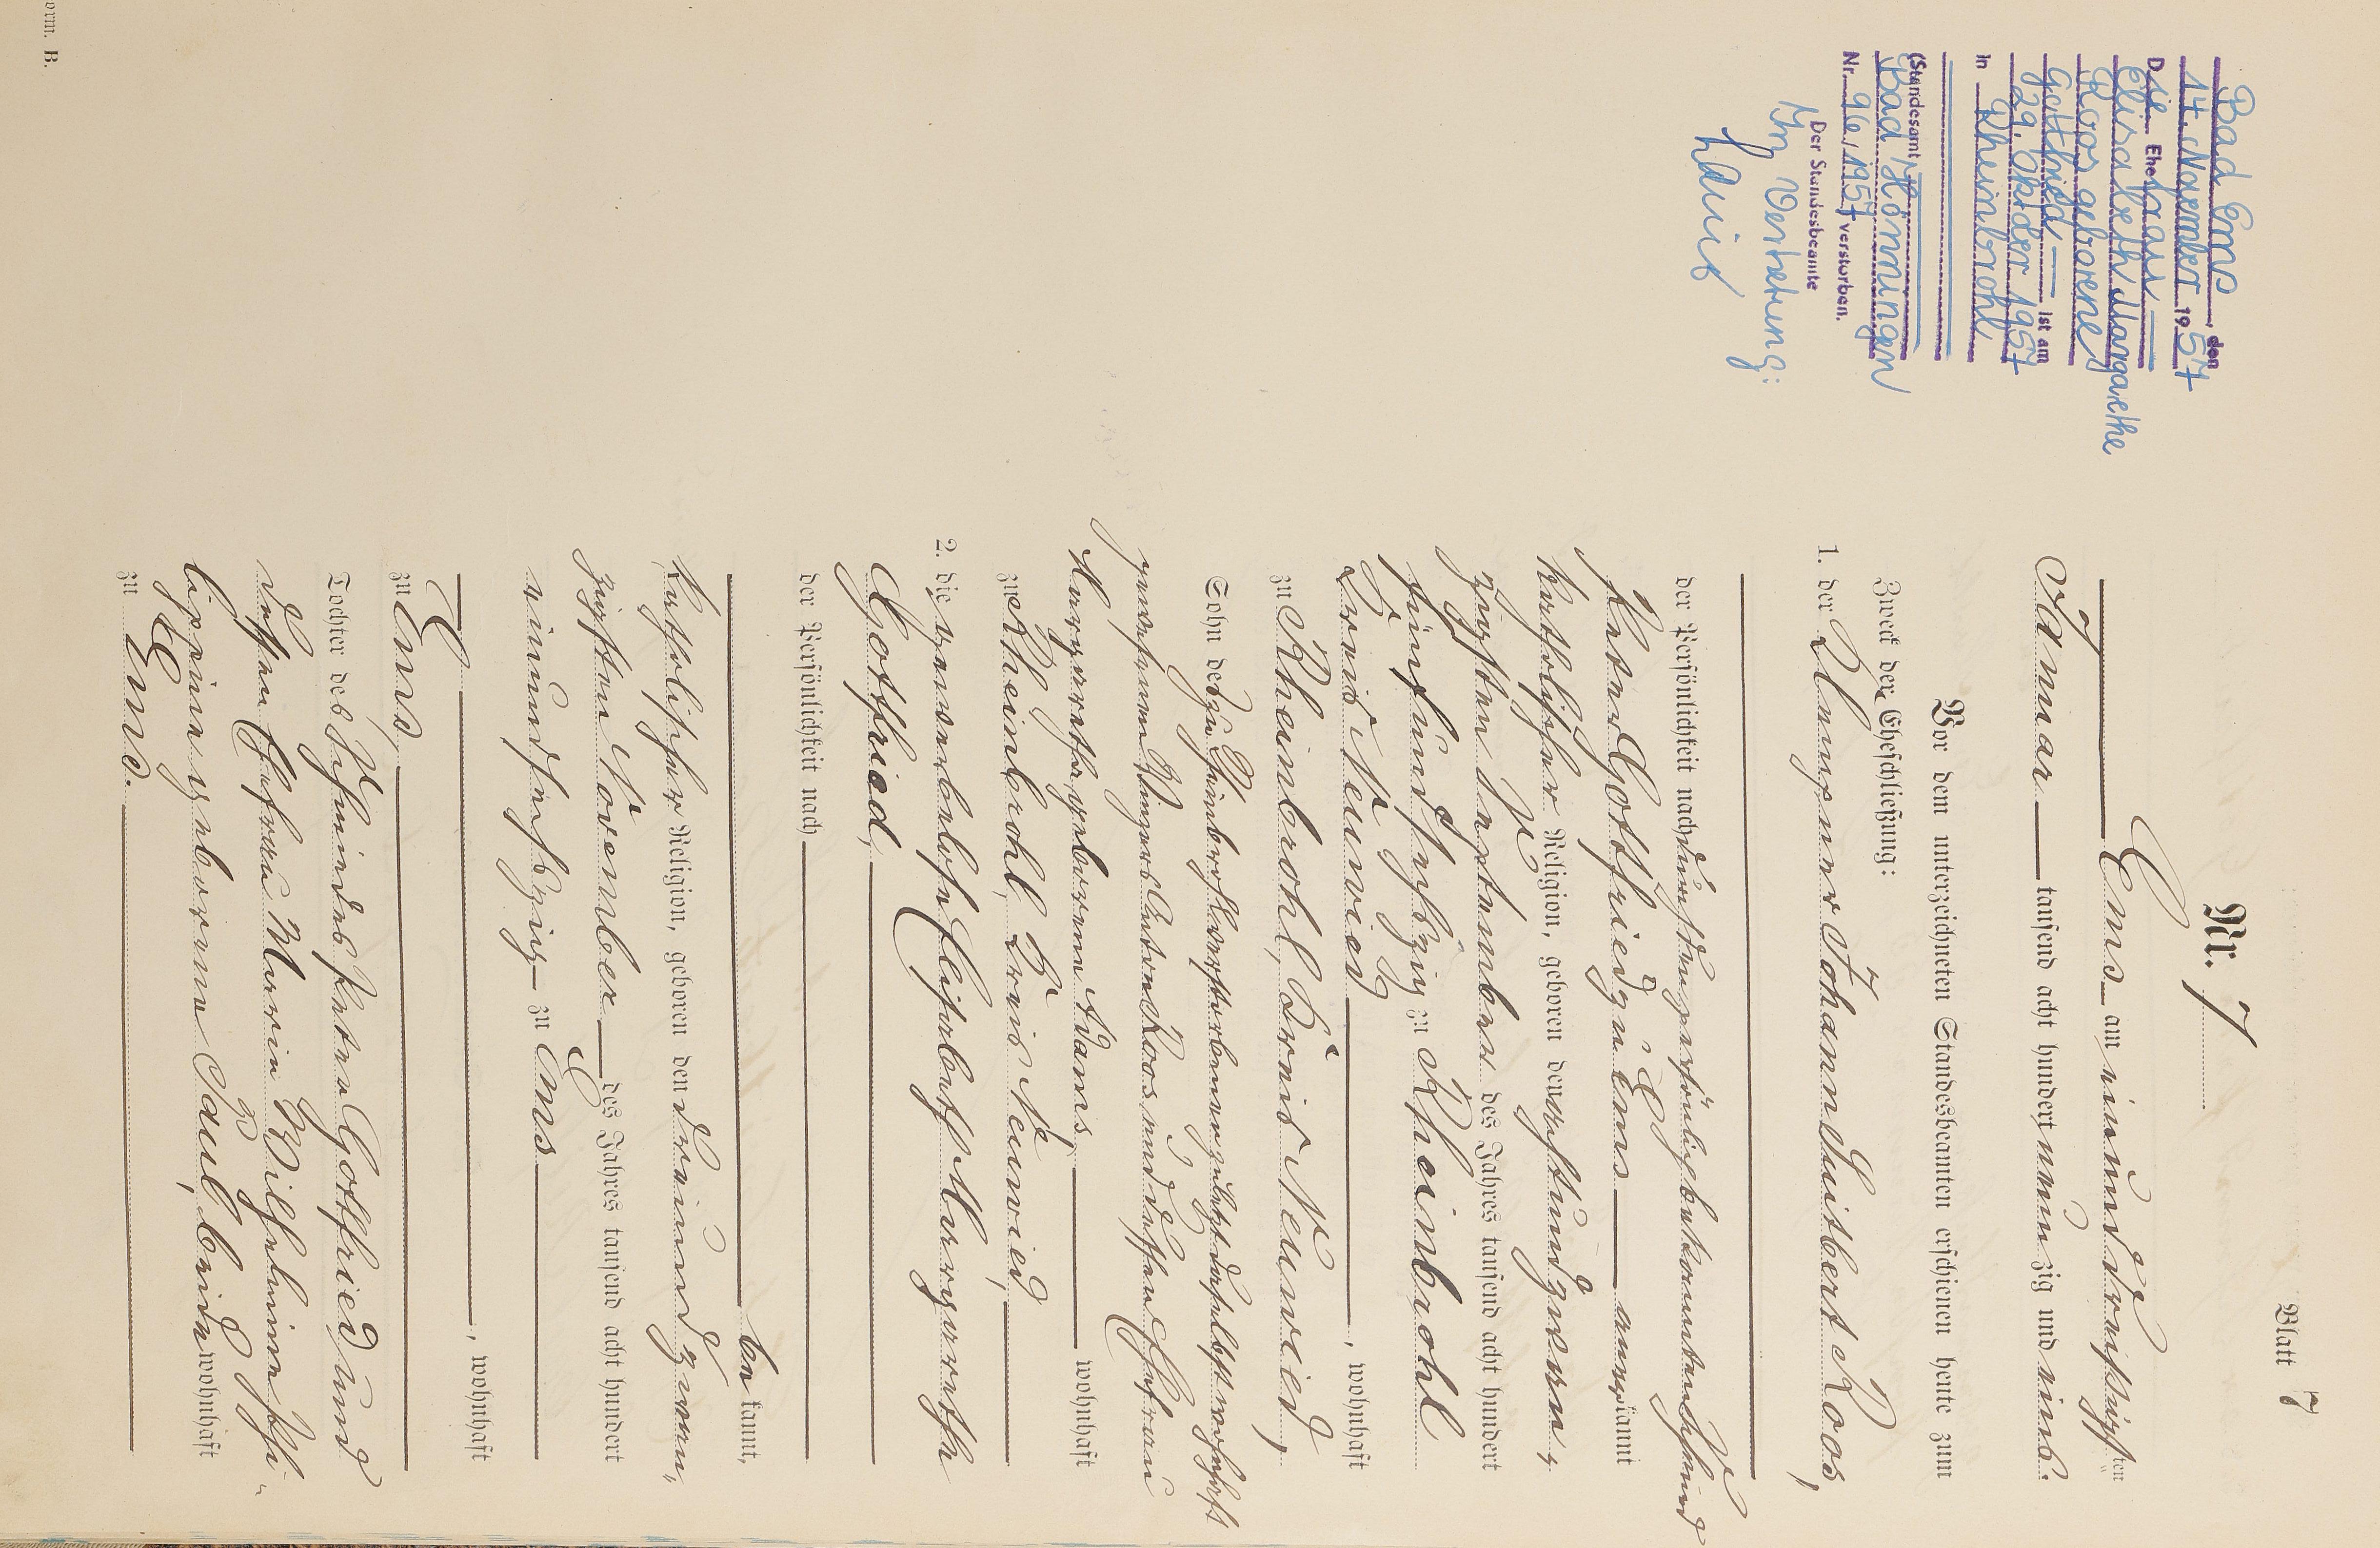 Blatt 7
Nr. 7
Ems am einunddreißigsten
Januar tausend acht hundert neunzig und eins.
Vor dem unterzeichneten Standesbeamten erschienen heute zum
Zweck der Eheschließung:
1. der Klempner Johann Suitbert Roos,
der Persönlichkeit nach durch den persönlich bekannten Schmied
Peter Gottfried zu Ems anerkannt
katholischer Religion, geboren den sechsundzwan„
zigsten September des Jahres tausend acht hundert
fünfundsechszig zu Rheinbrohl
Kreis Neuwied, wohnhaft
zu Rheinbrohl, Kreis Neuwied,
Sohn des zu Rheinbrohl verstorbenen zuletzt daselbst wohnhaft
gewesenen Winzers Anton Roos und dessen Ehefrau
Margaretha geborenen Adams, wohnhaft
zu Rheinbrohl, Kreis Neuwied,
2. die gewerbelose Elisabeth Margaretha
Gottfried,
der Persönlichkeit nach
be kannt,
katholischer Religion, geboren den dreiundzwan„
zigsten November des Jahres tausend acht hundert
neunundsechszig zu Ems
, wohnhaft
zu Ems,
Tochter des Schmiedes Peter Gottfried und
dessen Ehefrau Maria Wilhelmine Phi„
lippine geborene Paul, beide wohnhaft
zu Ems.
Bad Ems, den
14. November 1957
Die Ehefrau
Elisabeth Margarethe
Roos geborene
Gottfried ist am
29. Oktober 1957
in Rheinbrohl
(Standesamt
Bad Hönningen
Nr. 96/1957 verstorben.
Der Standesbeamte
In Vertretung:
orm. B.